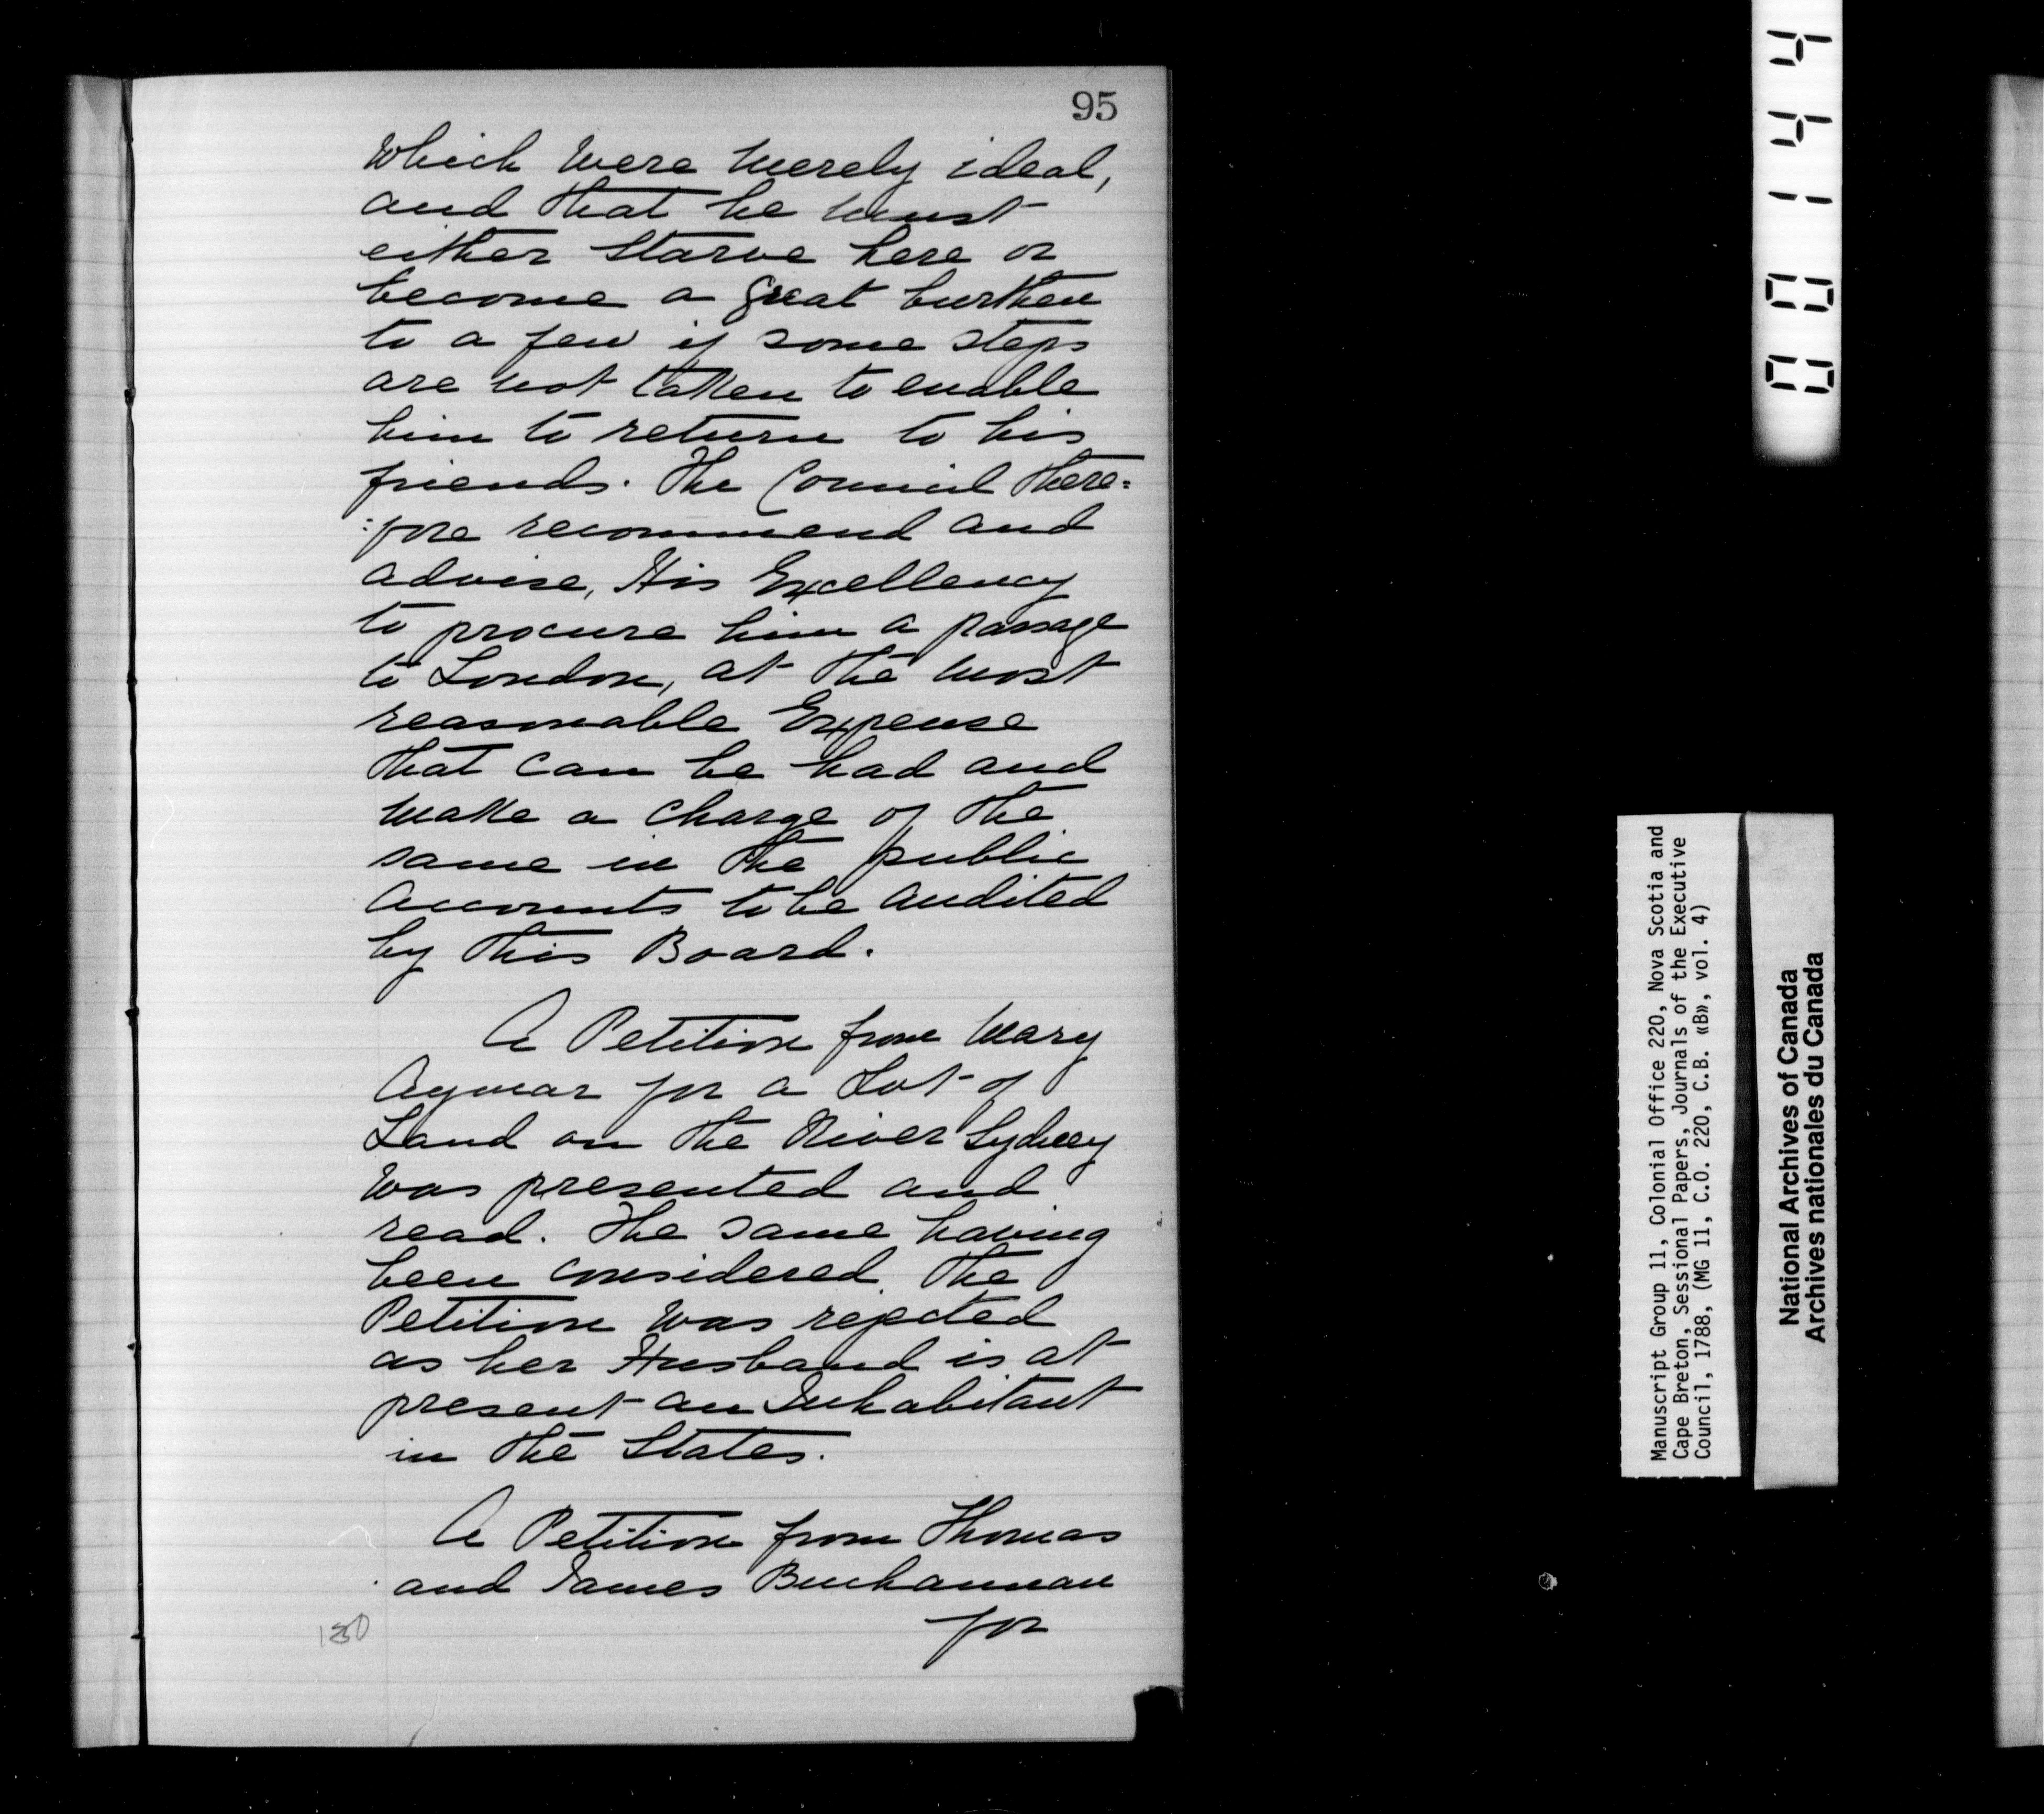 95
Which Were Merely ideal,
and that he must
either Starve here or
become a great burthen
to a few if some steps
are not taken to enable
him to return to his
friends. The Council there=
:fore recommend and
advise, His Excellency
to procure him a passage
to London, at the most
reasonable Expense
that can be had and
make a charge of the
same in the public
accounts to be audited
by this Board.
A Petition from Mary
Aymar for a Lot of
Land on the River Sydney
Was presented and
read. The same having
been considered the
Petition Was rejected
as her Husband is at
present an Inhabitant
in the States.
A Petition from Thomas
and James Buchannan
for
00144
Manuscript Group 11, Colonial Office 220, Nova Scotia and
Cape Breton, Sessional Papers, Journals of the Executive
Council, 1788, (MG 11, C.O. 220, C.B. «B», vol. 4)
National Archives of Canada
Archives nationales du Canada